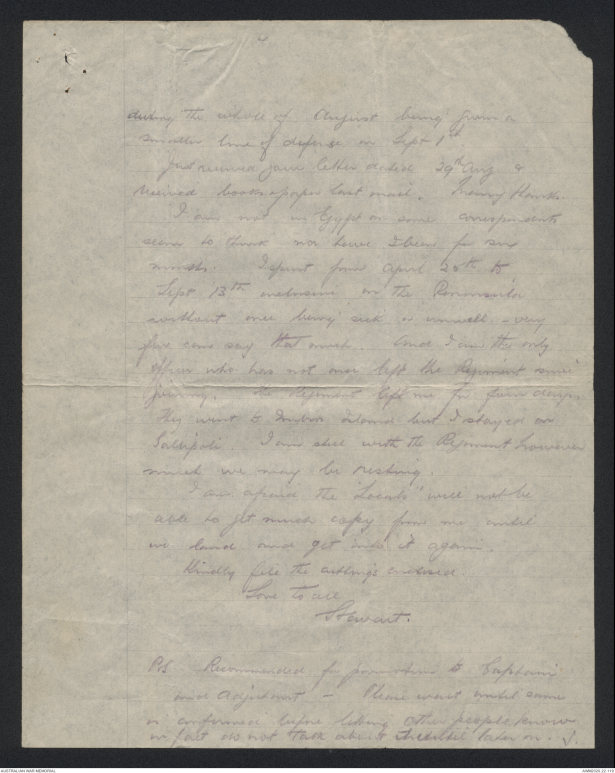 during the whole of August being from a
smaller line of defense on Sept 1st
Just received your letter dated 29th Aug &
received books & paper last mail. Many thanks.
I am not in Egypt as some correspondents
seem to think nor have I been for six
months. I spent from April 25th to
Sept 13th inclusive on the Peninsula
without once being sick or unwell - very
few can say that much. And I am the only
officer who has not once left the Regiment since
joining. The Regiment left me for four days.
They went to Imbros Island but I stayed on
Gallipoli. I am still with the Regiment however
much we may be resting.
I am afraid the "Locals" will not be
able to get much copy from me until
we land and get into it again.
Kindly file the cuttings enclosed.
Love to all
Stewart.
P.S. Recommended for promotion to Captain
and Adjutant - Please wait until same
is confirmed before letting other people know
in fact do not talk about it until later on. S.
AUSTRALIAN WAR MEMORIAL